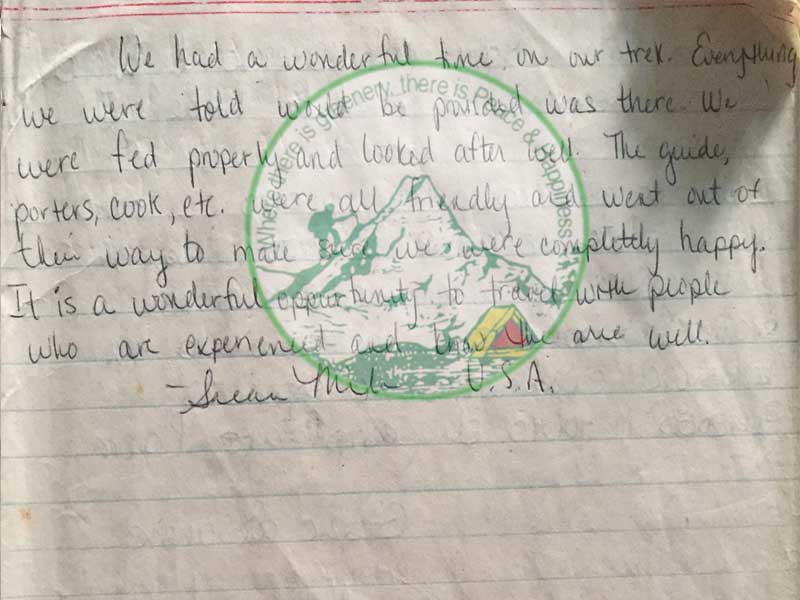 We had a wonderful time on our trek. Everything
we were told would be provided was there. We
were fed properly and looked after well. The guide,
porters, cook, etc. were all friendly and went out of
their way to make sure we were completely happy.
It is a wonderful opportunity to travel with people
who are experienced and know the area well.
- Susan U.S.A.
Where there is greenery, there is Peace & Happiness